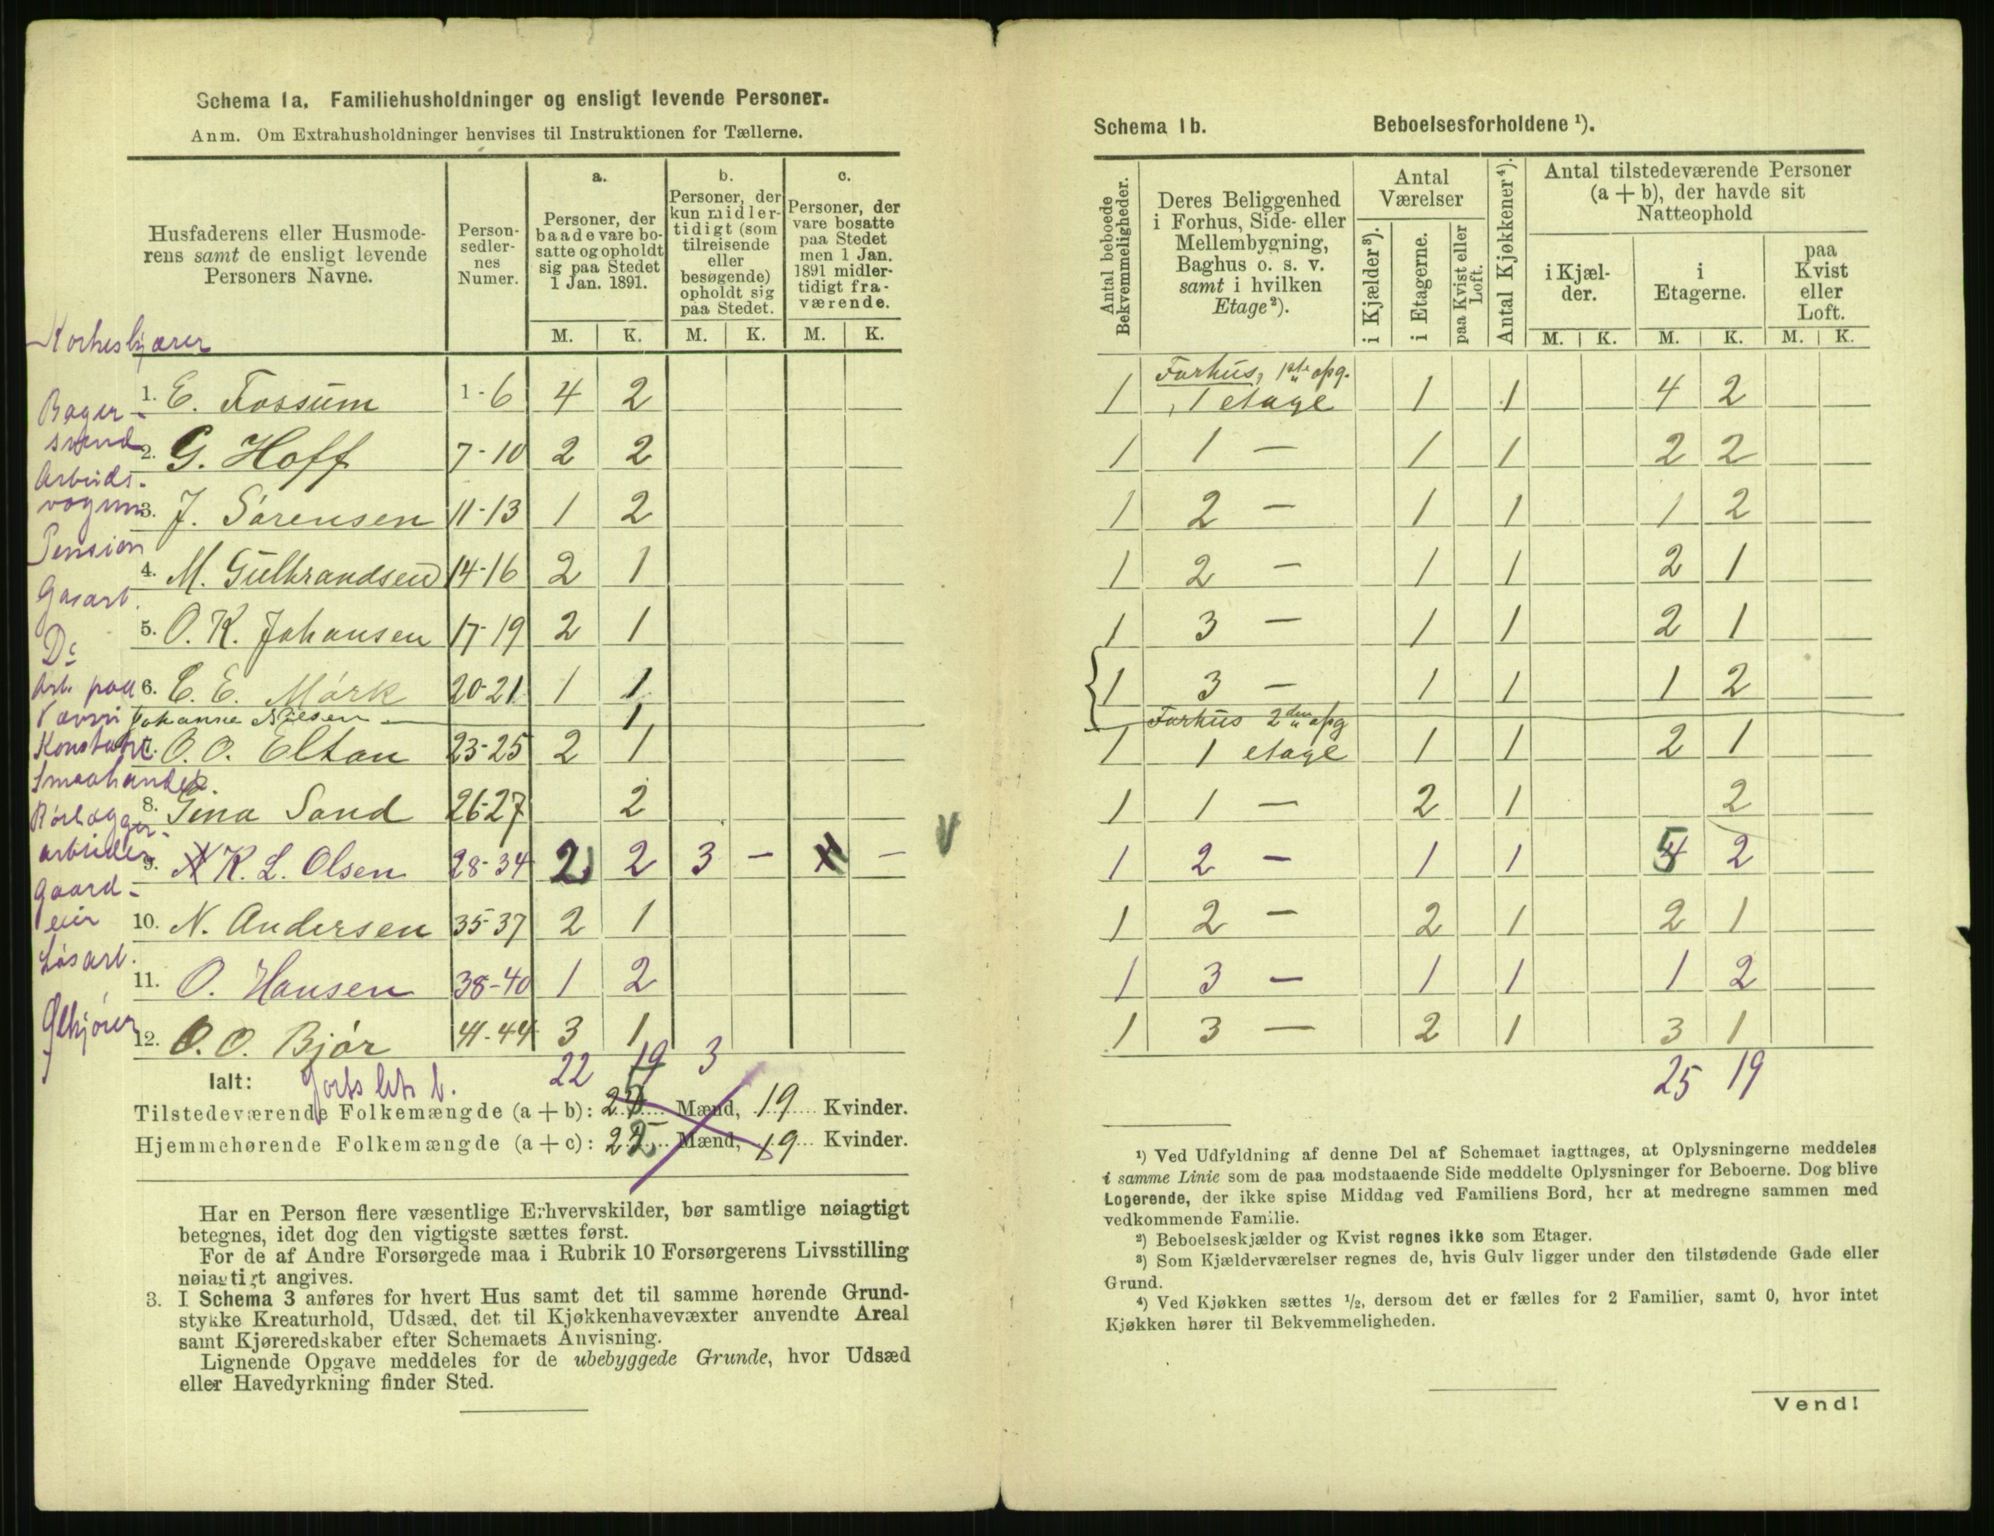 Schema 1a. Familiehusholdninger og ensligt levende Personer.
Anm. Om Extrahusholdninger henvises til Instruktionen for Tællerne.
Husfaderens eller Husmoderens samt de ensligt levende Personers Navne.
Person-sedler-nes Numer.
a. Personer, der baade vare bosatte og opholdt sig paa Stedet 1 Jan. 1891.
b. Personer, der kun midlertidigt (som tilreisende eller besøgende) opholdt sig paa Stedet.
c. Personer, der vare bosatte paa Stedet men 1 Jan. 1891 midlertidigt fraværende.
M. K. M. K. M. K.
1. E. Fossum 1-6 4 2
Bager-
svend
2. G. Hoff 7-10 2 2
Arbeids-
3. J. Sørensen 11-13 1 2
Pension
4. M. Gulbrandsen 14-16 2 1
Gasarb.
5. O. K. Johansen 17-19 2 1
Do
Arb. paa
6. E. E. Mørk 20-21 1 1
Johanne Nilsen — 1
7. O. O. Eltan 23-25 2 1
Smaahandel.
8. Gina Sand 26-27 2
Rørlægger-
arbeider
9. K. L. Olsen 28-34 2 2 3 — —
Gaard-
eier
10. N. Andersen 35-37 2 1
Løsarb.
11. O. Hansen 38-40 1 2
Ølkjører
12. O. O. Bjør 41-44 3 1
Ialt: 22 19 3
Tilstedeværende Folkemængde (a + b): Mænd, 19 Kvinder.
Hjemmehørende Folkemængde (a + c): 22 Mænd, 19 Kvinder.
Har en Person flere væsentlige Erhvervskilder, bør samtlige nøiagtigt
betegnes, idet dog den vigtigste sættes først.
For de af Andre Forsørgede maa i Rubrik 10 Forsørgerens Livsstilling
nøiagtigt angives.
3. I Schema 3 anføres for hvert Hus samt det til samme hørende Grund-
stykke Kreaturhold, Udsæd, det til Kjøkkenhavevæxter anvendte Areal
samt Kjøreredskaber efter Schemaets Anvisning.
Lignende Opgave meddeles for de ubebyggede Grunde, hvor Udsæd
eller Havedyrkning finder Sted.
Schema 1b. Beboelsesforholdene ¹).
Antal beboede Bekvemmeligheder.
Deres Beliggenhed i Forhus, Side- eller Mellembygning, Baghus o. s. v. samt i hvilken Etage²).
Antal Værelser
i Kjælder³).
i Etagerne.
paa Kvist eller Loft.
Antal Kjøkkener⁴).
Antal tilstedeværende Personer (a + b), der havde sit Natteophold
i Kjælder.
i Etagerne.
paa Kvist eller Loft.
M. K. M. K. M. K.
Forhus, 1ste opg.
1 , 1 etage 1 1 4 2
1 1 — 1 1 2 2
1 2 — 1 1 1 2
1 2 — 1 1 2 1
1 3 — 1 1 2 1
1 3 — 1 1 1 2
Forhus 2den opg
1 1 etage 1 1 2 1
1 1 — 2 1 2
1 2 — 1 1 5 2
1 2 — 2 1 2 1
1 3 — 1 1 1 2
1 3 — 2 1 3 1
25 19
¹) Ved Udfyldning af denne Del af Schemaet iagttages, at Oplysningerne meddeles
i samme Linie som de paa modstaaende Side meddelte Oplysninger for Beboerne. Dog blive
Logerende, der ikke spise Middag ved Familiens Bord, her at medregne sammen med
vedkommende Familie.
²) Beboelseskjælder og Kvist regnes ikke som Etager.
³) Som Kjælderværelser regnes de, hvis Gulv ligger under den tilstødende Gade eller
Grund.
⁴) Ved Kjøkken sættes ½, dersom det er fælles for 2 Familier, samt 0, hvor intet
Kjøkken hører til Bekvemmeligheden.
Vend!